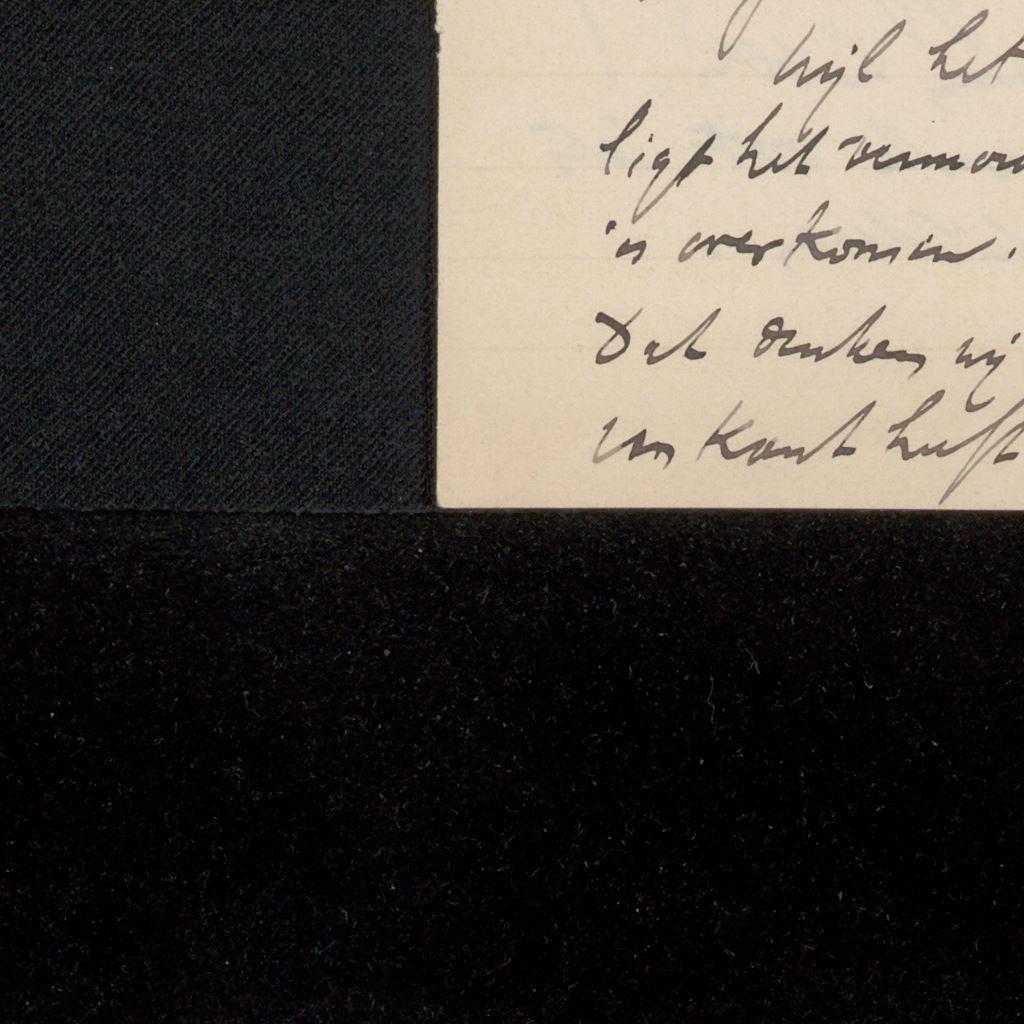 Wijl het
ligt het vermoe
is overkomen.
Dat denken wij
van kant heeft